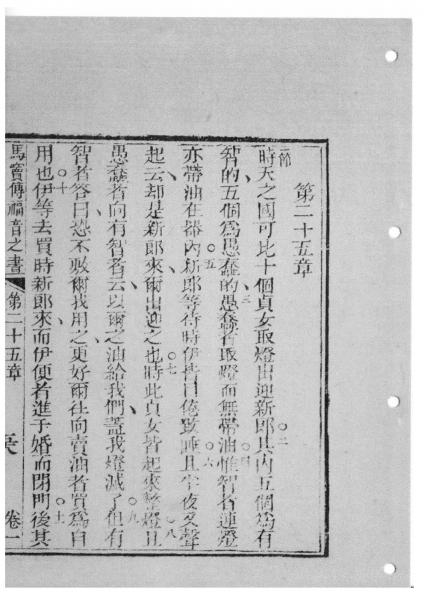 第二十五章
一節時天之國可比十個貞女取燈出迎新郎〇二其內五個為有
智的五個為愚蠢的〇三愚蠢者取燈而無帶油〇四惟智者連燈
亦帶油在器內〇五新郎等待時伊皆目倦致睡〇六且半夜受聲
起云却是新郎來爾出迎之也〇七時此貞女皆起來整燈〇八且
愚蠢者向有智者云以爾之油給我們蓋我燈滅了〇九但有
智者答曰恐不彀爾我用之更好爾往向賣油者買為自
用也〇十伊等去買時新郎來而伊便者進于婚而閉門〇十一後其
馬竇傳福音之書 第二十五章 卷一